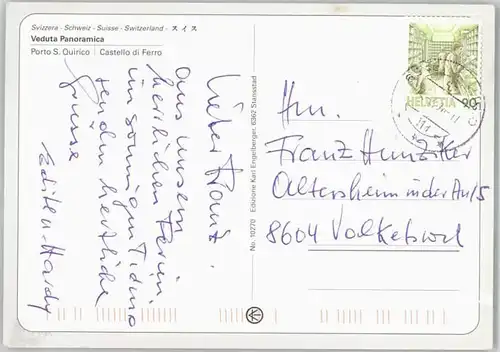 Svizzera · Schweiz · Suisse · Switzerland · スイス
Veduta Panoramica
Porto S. Quirico | Castello di Ferro
Lieber Franz
Aus unsern
herrlichen Ferien
im sonnigen Ticino
senden herzliche
Grüsse
Edith + Hardy
No. 10270 Edizione Karl Engelberger, 6362 Stansstad
HELVETIA 20
Hrn.
Franz Hunziker
Altersheim in der Au/5
8604 Volketswil